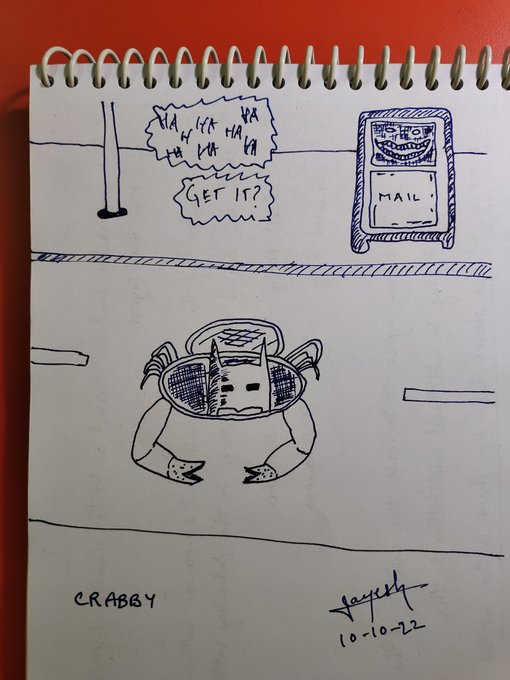 HA HA HA
H HA
HA HA HA
GET IT?
MAIL
CRABBY
Jayesh
10-10-22